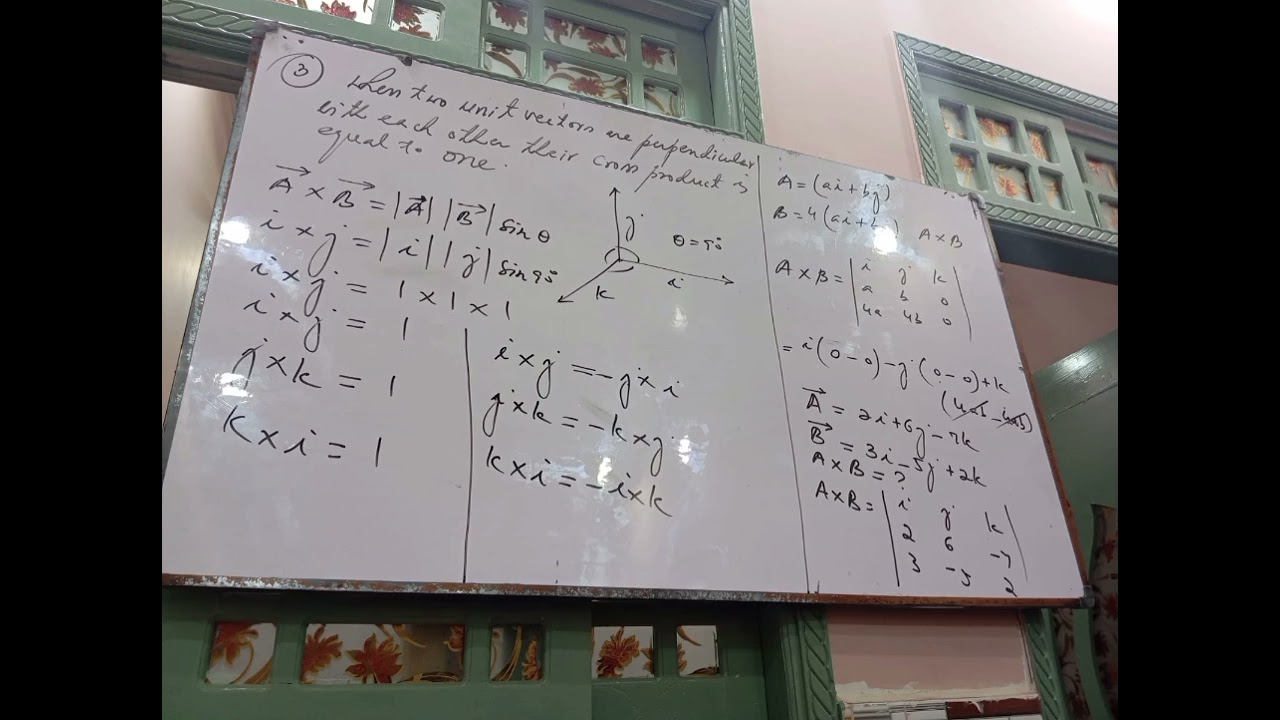 ③ When two unit vectors are perpendicular
with each other their cross product is
equal to one.
A × B = |A| |B| sin θ
i × j = |i| |j| sin 90°
i × j = 1 × 1 × 1
i × j = 1
j × k = 1
k × i = 1
j
θ = 90°
i
k
i × j = - j × i
j × k = - k × j
k × i = - i × k
A = (ai + bj)
B = 4 (ai +
A × B
A × B = | i j k |
a b 0
4a 4b 0
= i (0 - 0) - j (0 - 0) + k
(4ab - 4ab)
A = 2i + 6j - 7k
B = 3i - 5j + 2k
A × B = ?
A × B = | i j k |
2 6 -7
3 -5 2